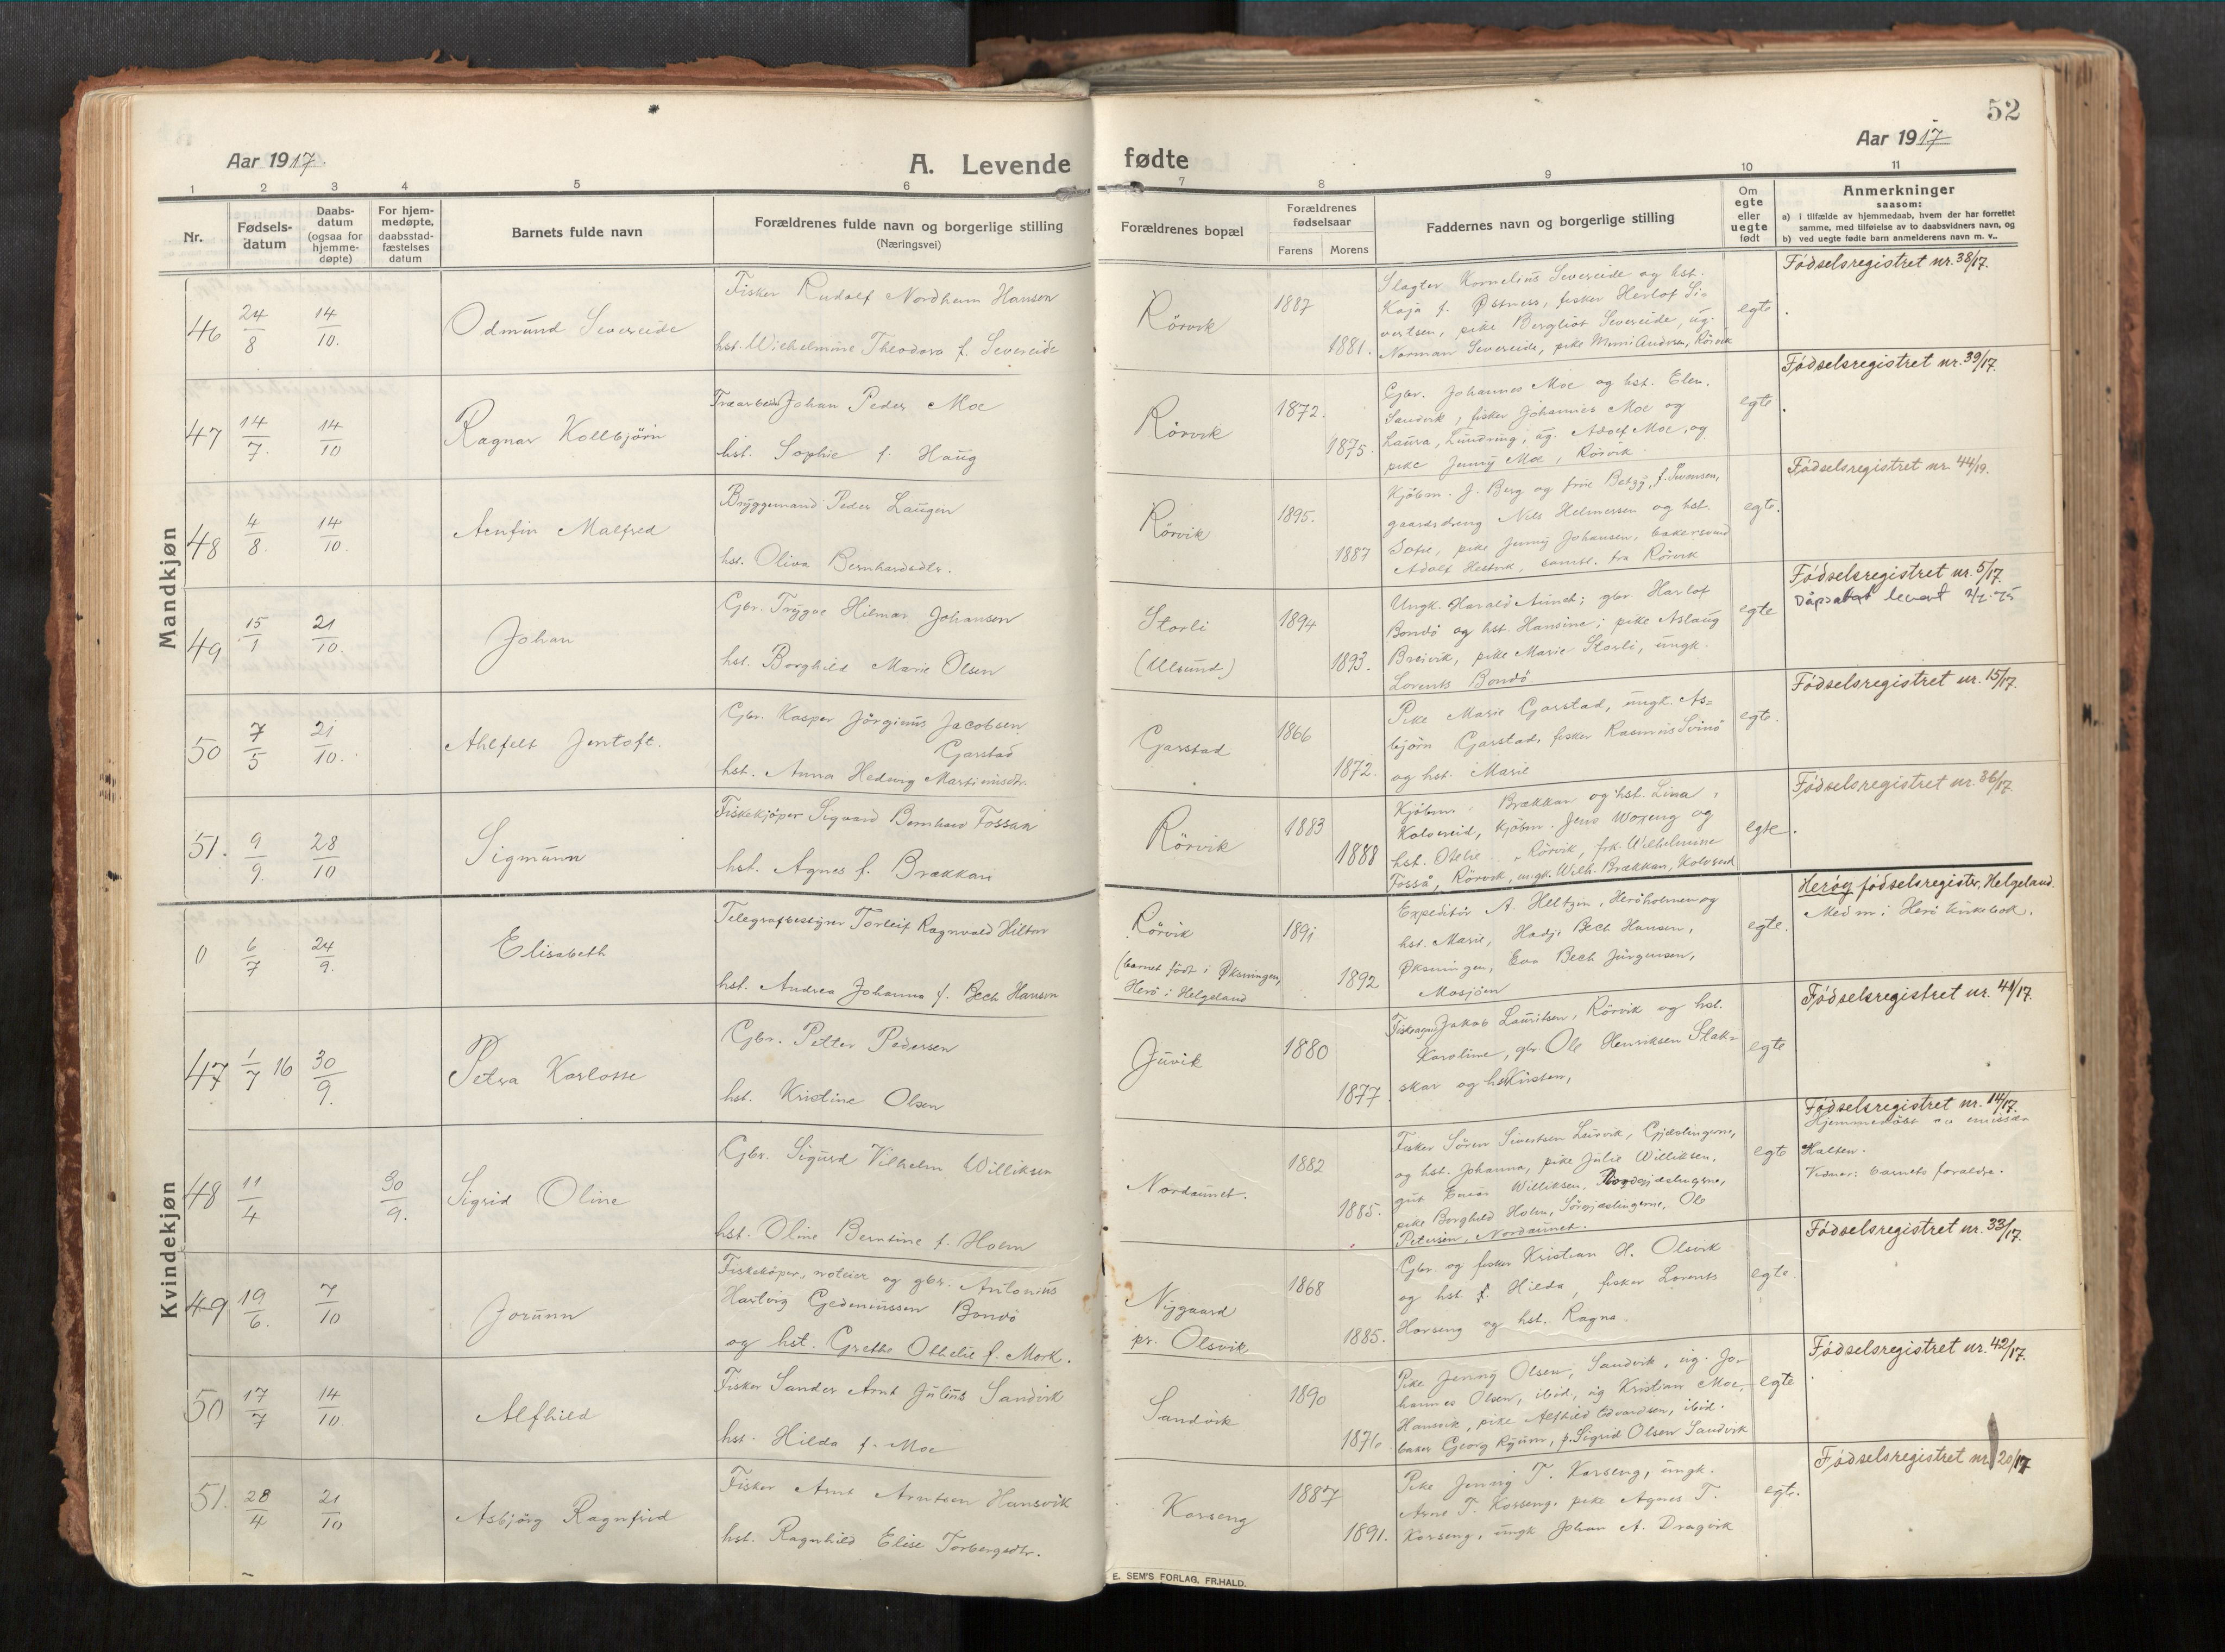 52
Aar 1917.
A. Levende
fødte
Aar 1917
1 2 3 4 5 6
7 8 9 10 11
Nr.
Fødsels-
datum
Daabs-
datum
(ogsaa for
hjemme-
døpte)
For hjem-
medøpte,
daabsstad-
fæstelses
datum
Barnets fulde navn
Forældrenes fulde navn og borgerlige stilling
(Næringsvei)
Forældrenes bopæl
Forældrenes
fødselsaar
Farens Morens
Faddernes navn og borgerlige stilling
Om
egte
eller
uegte
født
Anmerkninger
saasom:
a) i tilfælde av hjemmedaab, hvem der har forrettet
samme, med tilføielse av to daabsvidners navn, og
b) ved uegte fødte barn anmelderens navn m. v..
Mandkjøn
46 24/8 14/10. Odmund Severeide
Fisker Rudolf Nordheim Hansen
hst. Wilhelmine Theodora f. Severeide
Rörvik 1887 1881.
Slagter Kornelius Severeide og hst.
Kaja f. Østness, fisker Herlof Si-
vertsen, pike Bergliot Severeide, ug.
Norman Severeide, pike Mimi Andersen, Rörvik
egte
Fødselsregistret nr. 38/17.
47 14/7. 14/10 Ragnar Kollbjörn
Træarbeider Johan Peder Moe
hst. Sophie f. Haug
Rörvik 1872. 1875.
Gbr. Johannes Moe og hst. Elen.
Sandvik, fisker Johannes Moe og
Laura, Lundring, ug. Adolf Moe, og
pike Jenny Moe, Rörvik.
egte
Fødselsregistret nr. 39/17.
48 4/8. 14/10. Arnfin Malfred
Bryggemand Peder Laugen
hst. Oliva Bernhardsdtr.
Rörvik 1895. 1887
Kjöbm. J. Berg og frue Betzy, f. Svensen,
gaardsdreng Nils Helmersen og hst.
Sofie, pike Jenny Johansen, bakersvend
Adolf Hestvik, samtl. fra Rörvik
egte.
Fødselsregistret nr. 44/19.
49 15/1 21/10. Johan
Gbr. Trygve Hilmar Johansen
hst. Borghild Marie Olsen
Storli
(Ulsund)
1894 1893.
Ungk. Harald Aunet; gbr. Harlof
Bondö og hst. Hansine; pike Aslaug
Breivik, pike Marie Storli, ungk.
Lorents Bondö.
egte
Fødselsregistret nr. 5/17.
Dåpsattest levert
50 7/5 21/10. Ahlfelt Jentoft.
Gbr. Kasper Jörginus Jacobsen
Garstad
hst. Anna Hedvig Martinusdtr.
Garstad 1866 1872.
Pike Marie Garstad, ungk. As-
björn Garstad, fisker Rasmus Svinö
og hst. Marie
egte.
Fødselsregistret nr. 15/17.
51. 9/9. 28/10 Sigmunn
Fiskekjöper Sigvard Bernhard Fossaa
hst. Agnes f. Brækkan
Rörvik 1883 1888
Kjöbm. Brækkan og hst. Lina,
Kolvereid, kjöbm. Jens Woxeng og
hst. Otelie, Rörvik, frk. Wilhelmine
Fosså, Rörvik, ungk. Wilh. Brækkan, Kolvereid
egte.
Fødselsregistret nr. 36/17.
Kvindekjøn
0 6/7 24/9. Elisabeth
Telegrafbestyrer Torleif Ragnvald Hilton
hst. Andrea Johanna f. Bech Hansen
Rörvik
(barnet födt i Øksningen,
Herö i Helgeland
1891 1892
Expeditör A. Heltzen, Heröholmen og
hst. Marie, Hadj. Bech Hansen,
Øksningen, Eva Bech Jürgensen,
Mosjöen
egte.
Herøy fødselsregister, Helgeland.
Med nr i Herö kirkebok.
47 1/7 16 30/9. Petra Karlotte
Gbr. Petter Pedersen
hst. Kristine Olsen
Juvik 1880 1877.
Jakob Lauritsen, Rörvik og hst.
Karoline, gbr. Ole Henriksen Slak-
skar og hst. Kirsten,
egte
Fødselsregistret nr. 41/17.
48 11/4 30/9. Sigrid Oline
Gbr. Sigurd Vilhelm Williksen
hst. Oline Berntine f. Holm
Nordaunet. 1882 1885.
Fisker Sören Sivertsen Leirvik, Gjæslingerne,
og hst. Johanna, pike Julie Williksen,
gut Einar Williksen, Nordgjæslingerne,
pike Borghild Holm, Sörgjæslingerne, Ole
Petersen, Nordaunet.
egte
Fødselsregistret nr. 14/17.
Hjemmedöbt av emissær
Halten.
Vidner: barnets foraldre.
49 19/6. 7/10 Jorunn
Fiskekjöper, noteier og gbr. Antonius
Hartvig Gedeniussen Bondö
og hst. Grethe Othelie f. Mork.
Nygaard
pr. Olsvik
1868 1885.
Gbr. og fisker Kristian H. Olsvik
og hst. f. Hilda, fisker Lorents
Horseng og hst. Ragna.
egte.
Fødselsregistret nr. 33/17.
50 17/7 14/10 Alfhild
Fisker Sander Arnt Julius Sandvik
hst. Hilda f. Moe
Sandvik 1890 1876
Pike Jenny Olsen, Sandvik, ug. Jo-
hannes Olsen, ibid., ug Kristian Moe,
Hansvik, pike Alfhild Edvardsen, ibid.
baker Georg Ryum, p. Sigrid Olsen Sandvik
egte
Fødselsregistret nr. 42/17.
51. 28/4 21/10 Asbjörg Ragnfrid
Fisker Arnt Arntsen Hansvik
hst. Ragnhild Elise Torbergsdtr.
Korseng 1887 1891.
Pike Jenny T. Korseng, ungk.
Arne T. Korseng, pike Agnes T.
Korseng, ungk Johan A. Dragvik
egte.
Fødselsregistret nr. 20/17
E. SEM'S FORLAG, FR.HALD.